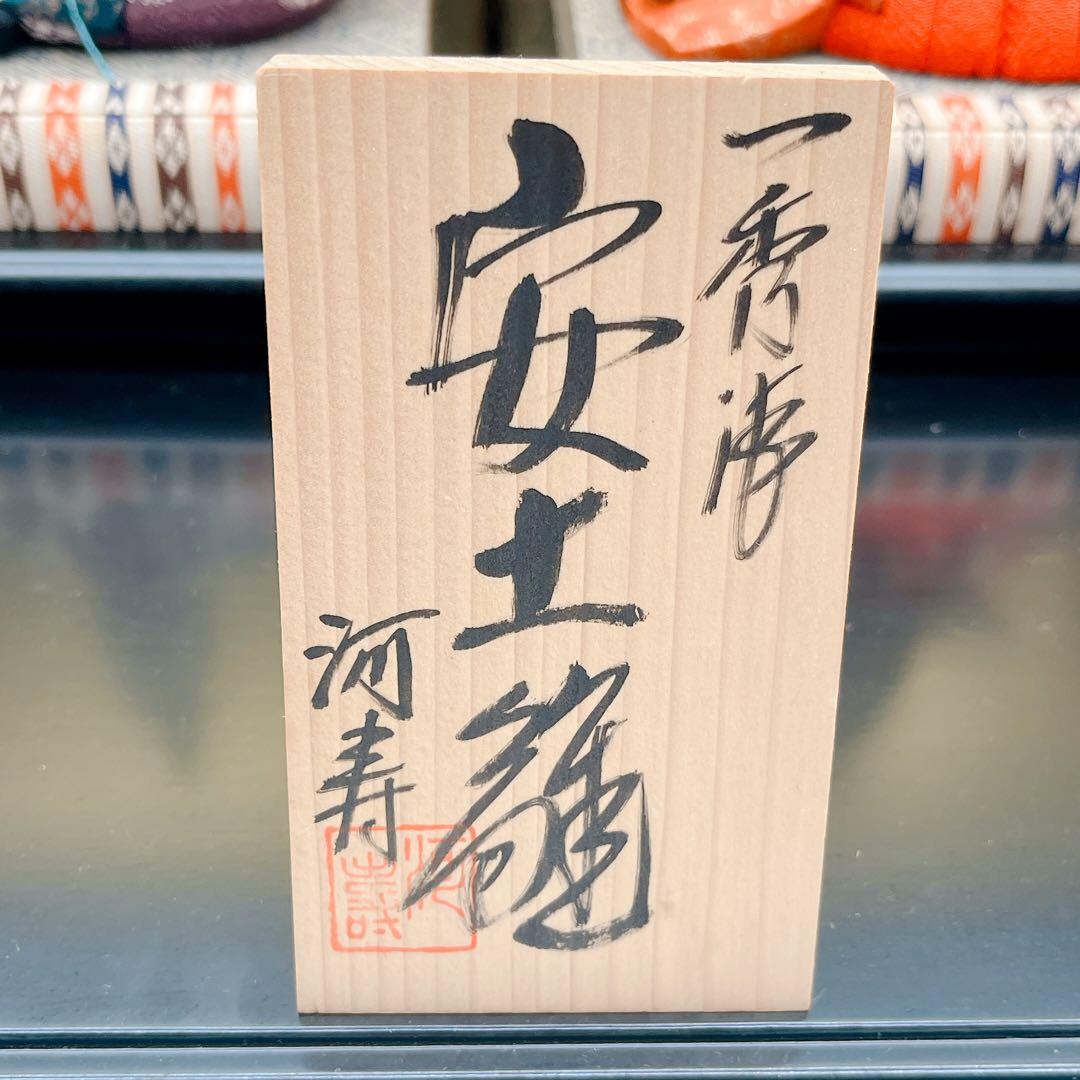 一秀
安土雛
河寿